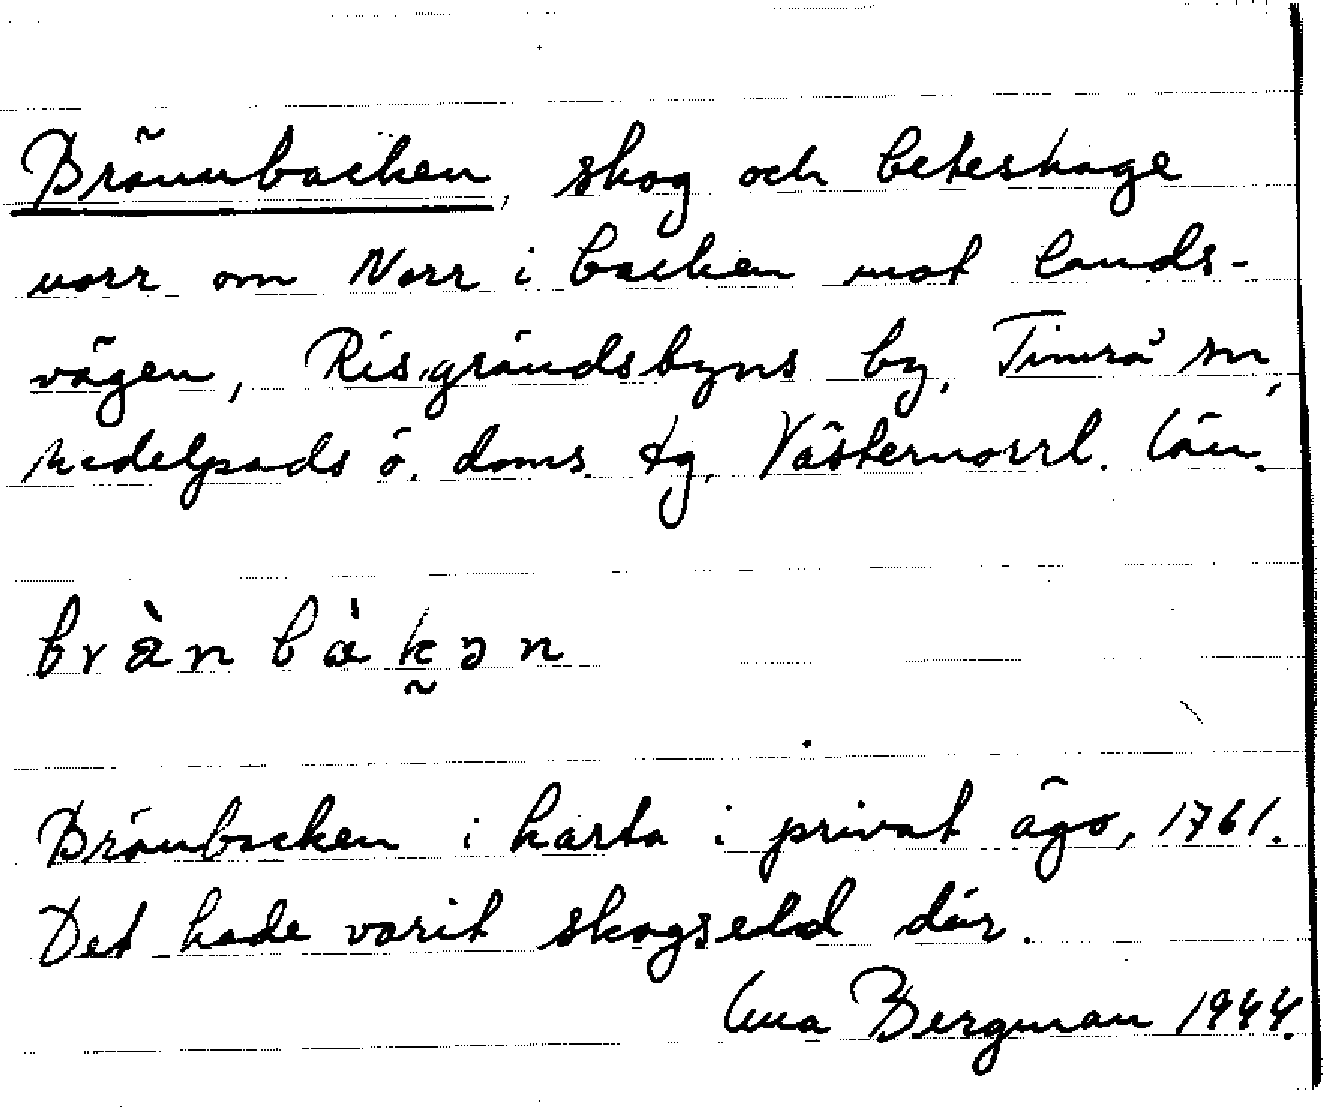 Brännbacken, skog och beteshage
norr om Norr i backen mot lands-
vägen, Risgrändsbyns by, Timrå sn,
Medelpads ö. doms. tg. Västernorrl. län.
brän båkən
Bränbacken i karta i privat ägo, 1761.
Det hade varit skogseld där.
Bergman 1944.